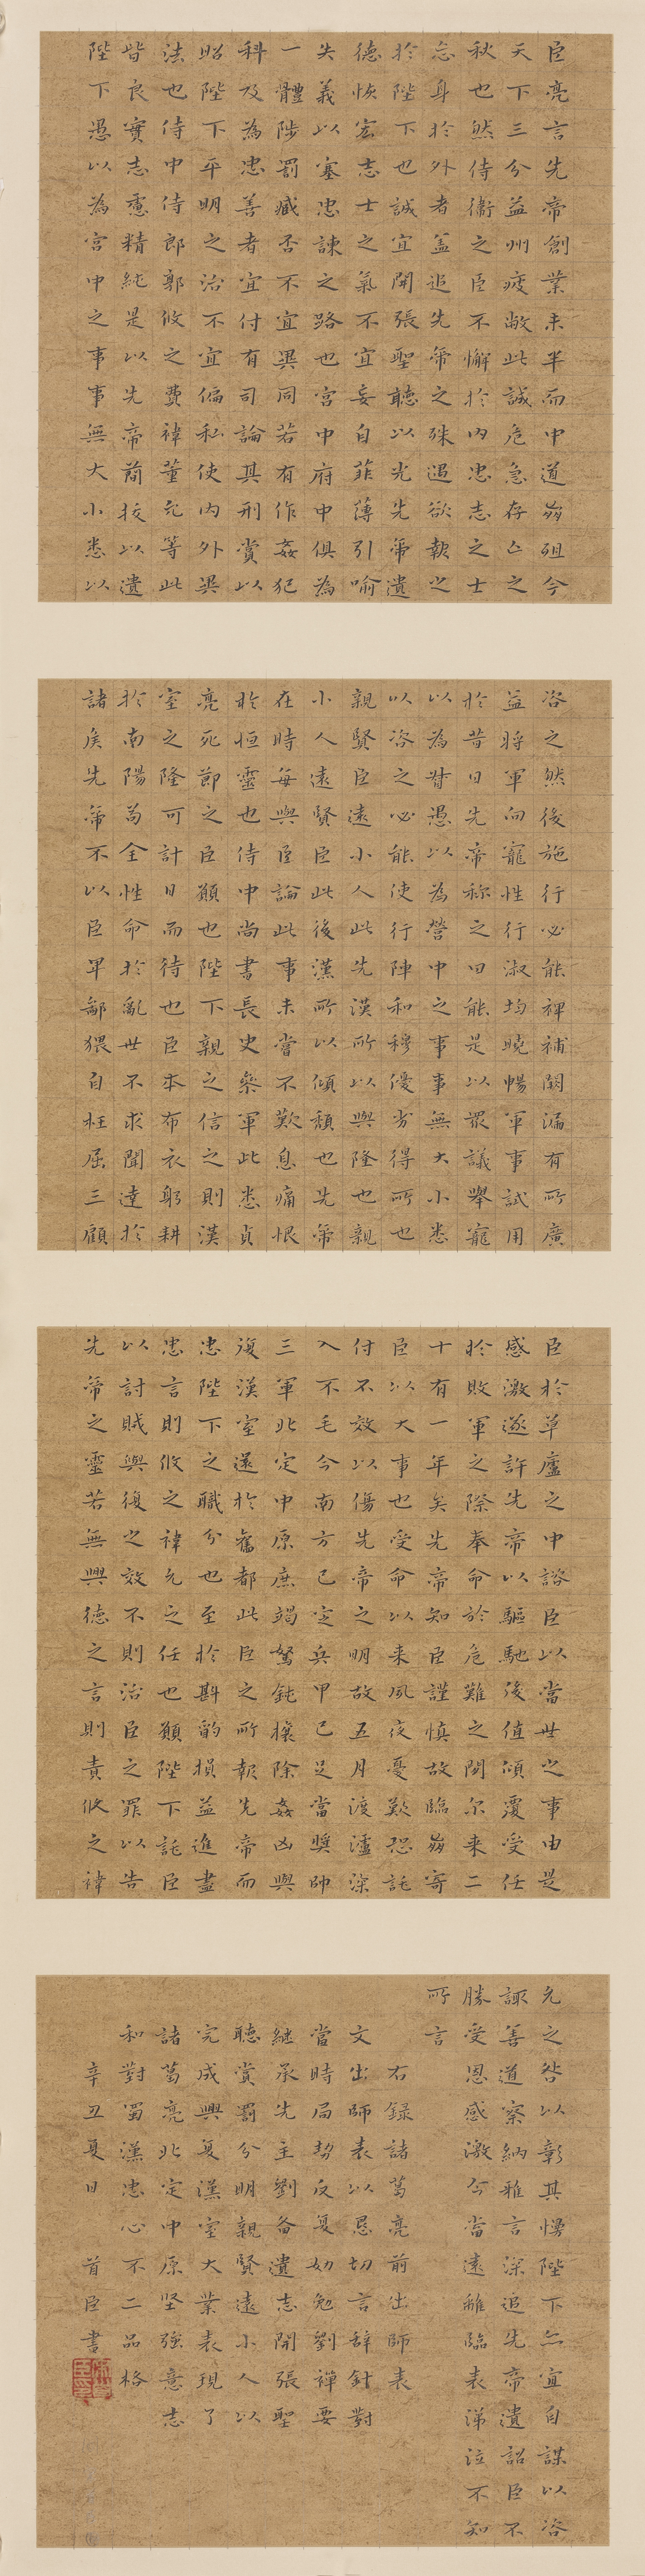 臣亮言先帝創業未半而中道崩殂今
天下三分益州疲敝此誠危急存亡之
秋也然侍衞之臣不懈於內忠志之士
忘身於外者蓋追先帝之殊遇欲報之
於陛下也誠宜開張聖聽以光先帝遺
德恢宏志士之氣不宜妄自菲薄引喻
失義以塞忠諫之路也宮中府中俱為
一體陟罰臧否不宜異同若有作姦犯
科及為忠善者宜付有司論其刑賞以
昭陛下平明之治不宜偏私使內外異
法也侍中侍郎郭攸之費禕董允等此
皆良實志慮精純是以先帝簡拔以遺
陛下愚以為宮中之事事無大小悉以
咨之然後施行必能裨補闕漏有所廣
益將軍向寵性行淑均曉暢軍事試用
於昔日先帝稱之曰能是以眾議舉寵
以為督愚以為營中之事事無大小悉
以咨之必能使行陣和穆優劣得所也
親賢臣遠小人此先漢所以興隆也親
小人遠賢臣此後漢所以傾頹也先帝
在時每與臣論此事未嘗不歎息痛恨
於桓靈也侍中尚書長史參軍此悉貞
亮死節之臣願也陛下親之信之則漢
室之隆可計日而待也臣本布衣躬耕
於南陽苟全性命於亂世不求聞達於
諸侯先帝不以臣卑鄙猥自枉屈三顧
臣於草廬之中諮臣以當世之事由是
感激遂許先帝以驅馳後值傾覆受任
於敗軍之際奉命於危難之間尔来二
十有一年矣先帝知臣謹慎故臨崩寄
臣以大事也受命以来夙夜憂歎恐託
付不效以傷先帝之明故五月渡瀘深
入不毛今南方已定兵甲已足當獎帥
三軍北定中原庶竭駑鈍攘除姦凶興
復漢室還於舊都此臣之所報先帝而
忠陛下之職分也至於斟酌損益進盡
忠言則攸之禕允之任也願陛下託臣
以討賊興復之效不則治臣之罪以告
先帝之靈若無興德之言則責攸之禕
允之咎以彰其慢陛下亦宜自謀以咨
諏善道察納雅言深追先帝遺詔臣不
勝受恩感激今當遠離臨表涕泣不知
所言
右錄諸葛亮前出師表
文出師表以恳切言辞針對
當時局勢反复劝勉劉禪要
継承先主劉备遺志開張聖
聽賞罰分明親賢遠小人以
完成興复漢室大業表現了
諸葛亮北定中原坚強意志
和對蜀漢忠心不二品格
辛丑夏日 首臣書